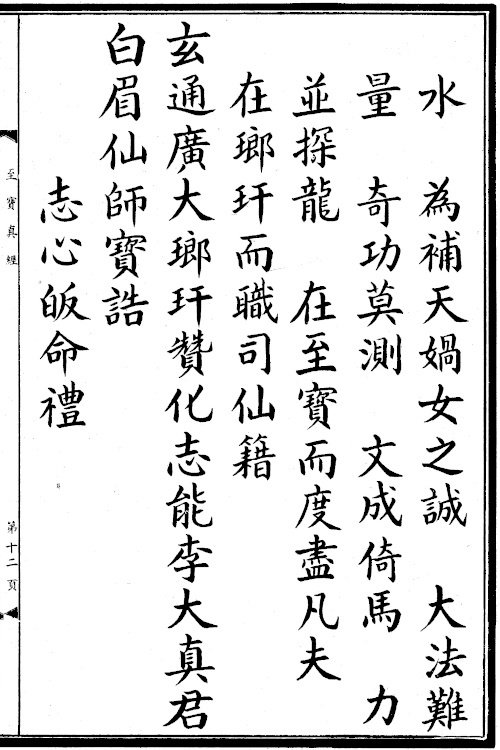 水　為補天媧女之誠　大法難
量　奇功莫測　文成倚馬　力
並探龍　在至寶而度盡凡夫
在瑯玕而職司仙籍
玄通廣大瑯玕贊化志能李大真君
白眉仙師寶誥
志心皈命禮
至寶真經
第十二頁